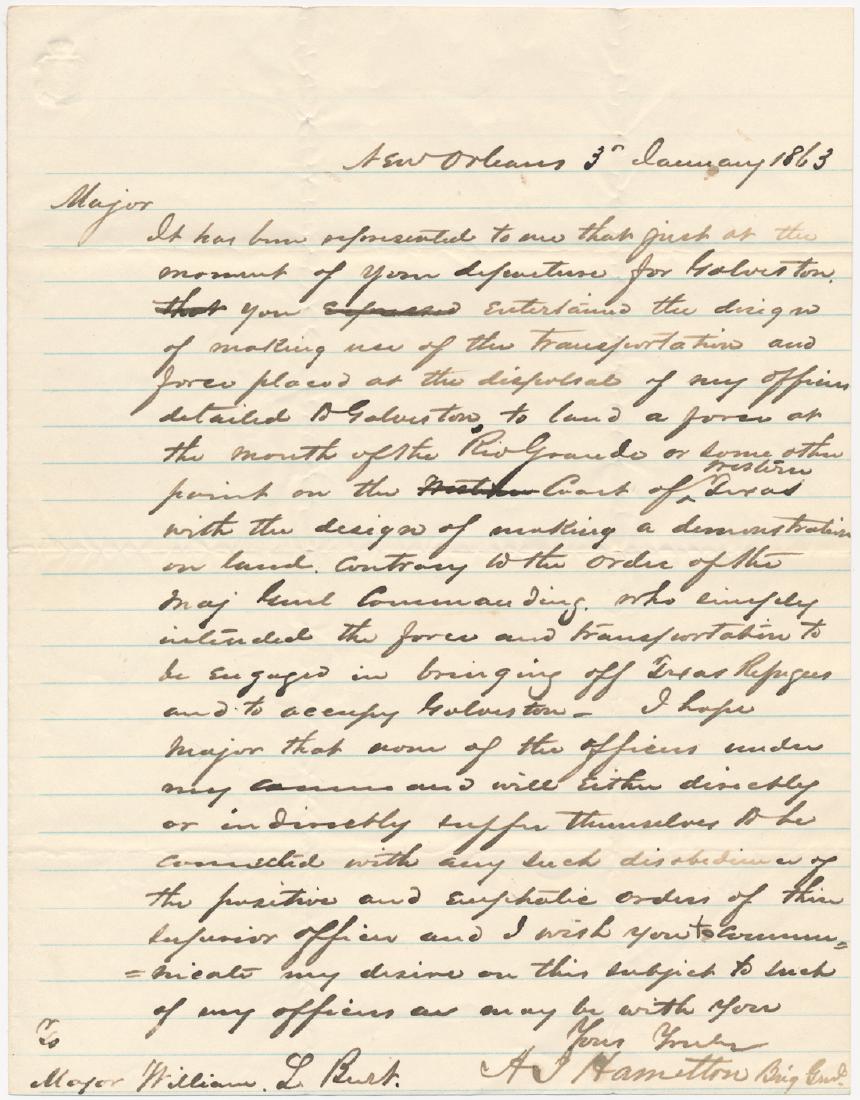 New Orleans 3r January 1863
Major
It has been represented to me that just at the
moment of your departure for Galveston.
that you expressed entertained the design
of making use of the transportation and
force placed at the disposal of my officers
detailed to Galveston, to land a force at
the mouth of the Rio Grande or some other
point on the Western Coast of ^ western Texas
with the design of making a demonstration
on land. contrary to the order of the
Maj Genl Commanding. who simply
intended the force and transportation to
be engaged in bringing off Texas Refugees
and to occupy Galveston - I hope
Major that none of the officers under
my command will either directly
or indirectly suffer themselves to be
connected with any such disobedience of
the positive and emphatic orders of their
superior officer and I wish you to commu=
=nicate my desire on this subject to such
of my officers as may be with you
Yours Truly
A J Hamilton Brig Genl.
To
Major William. L Burt.